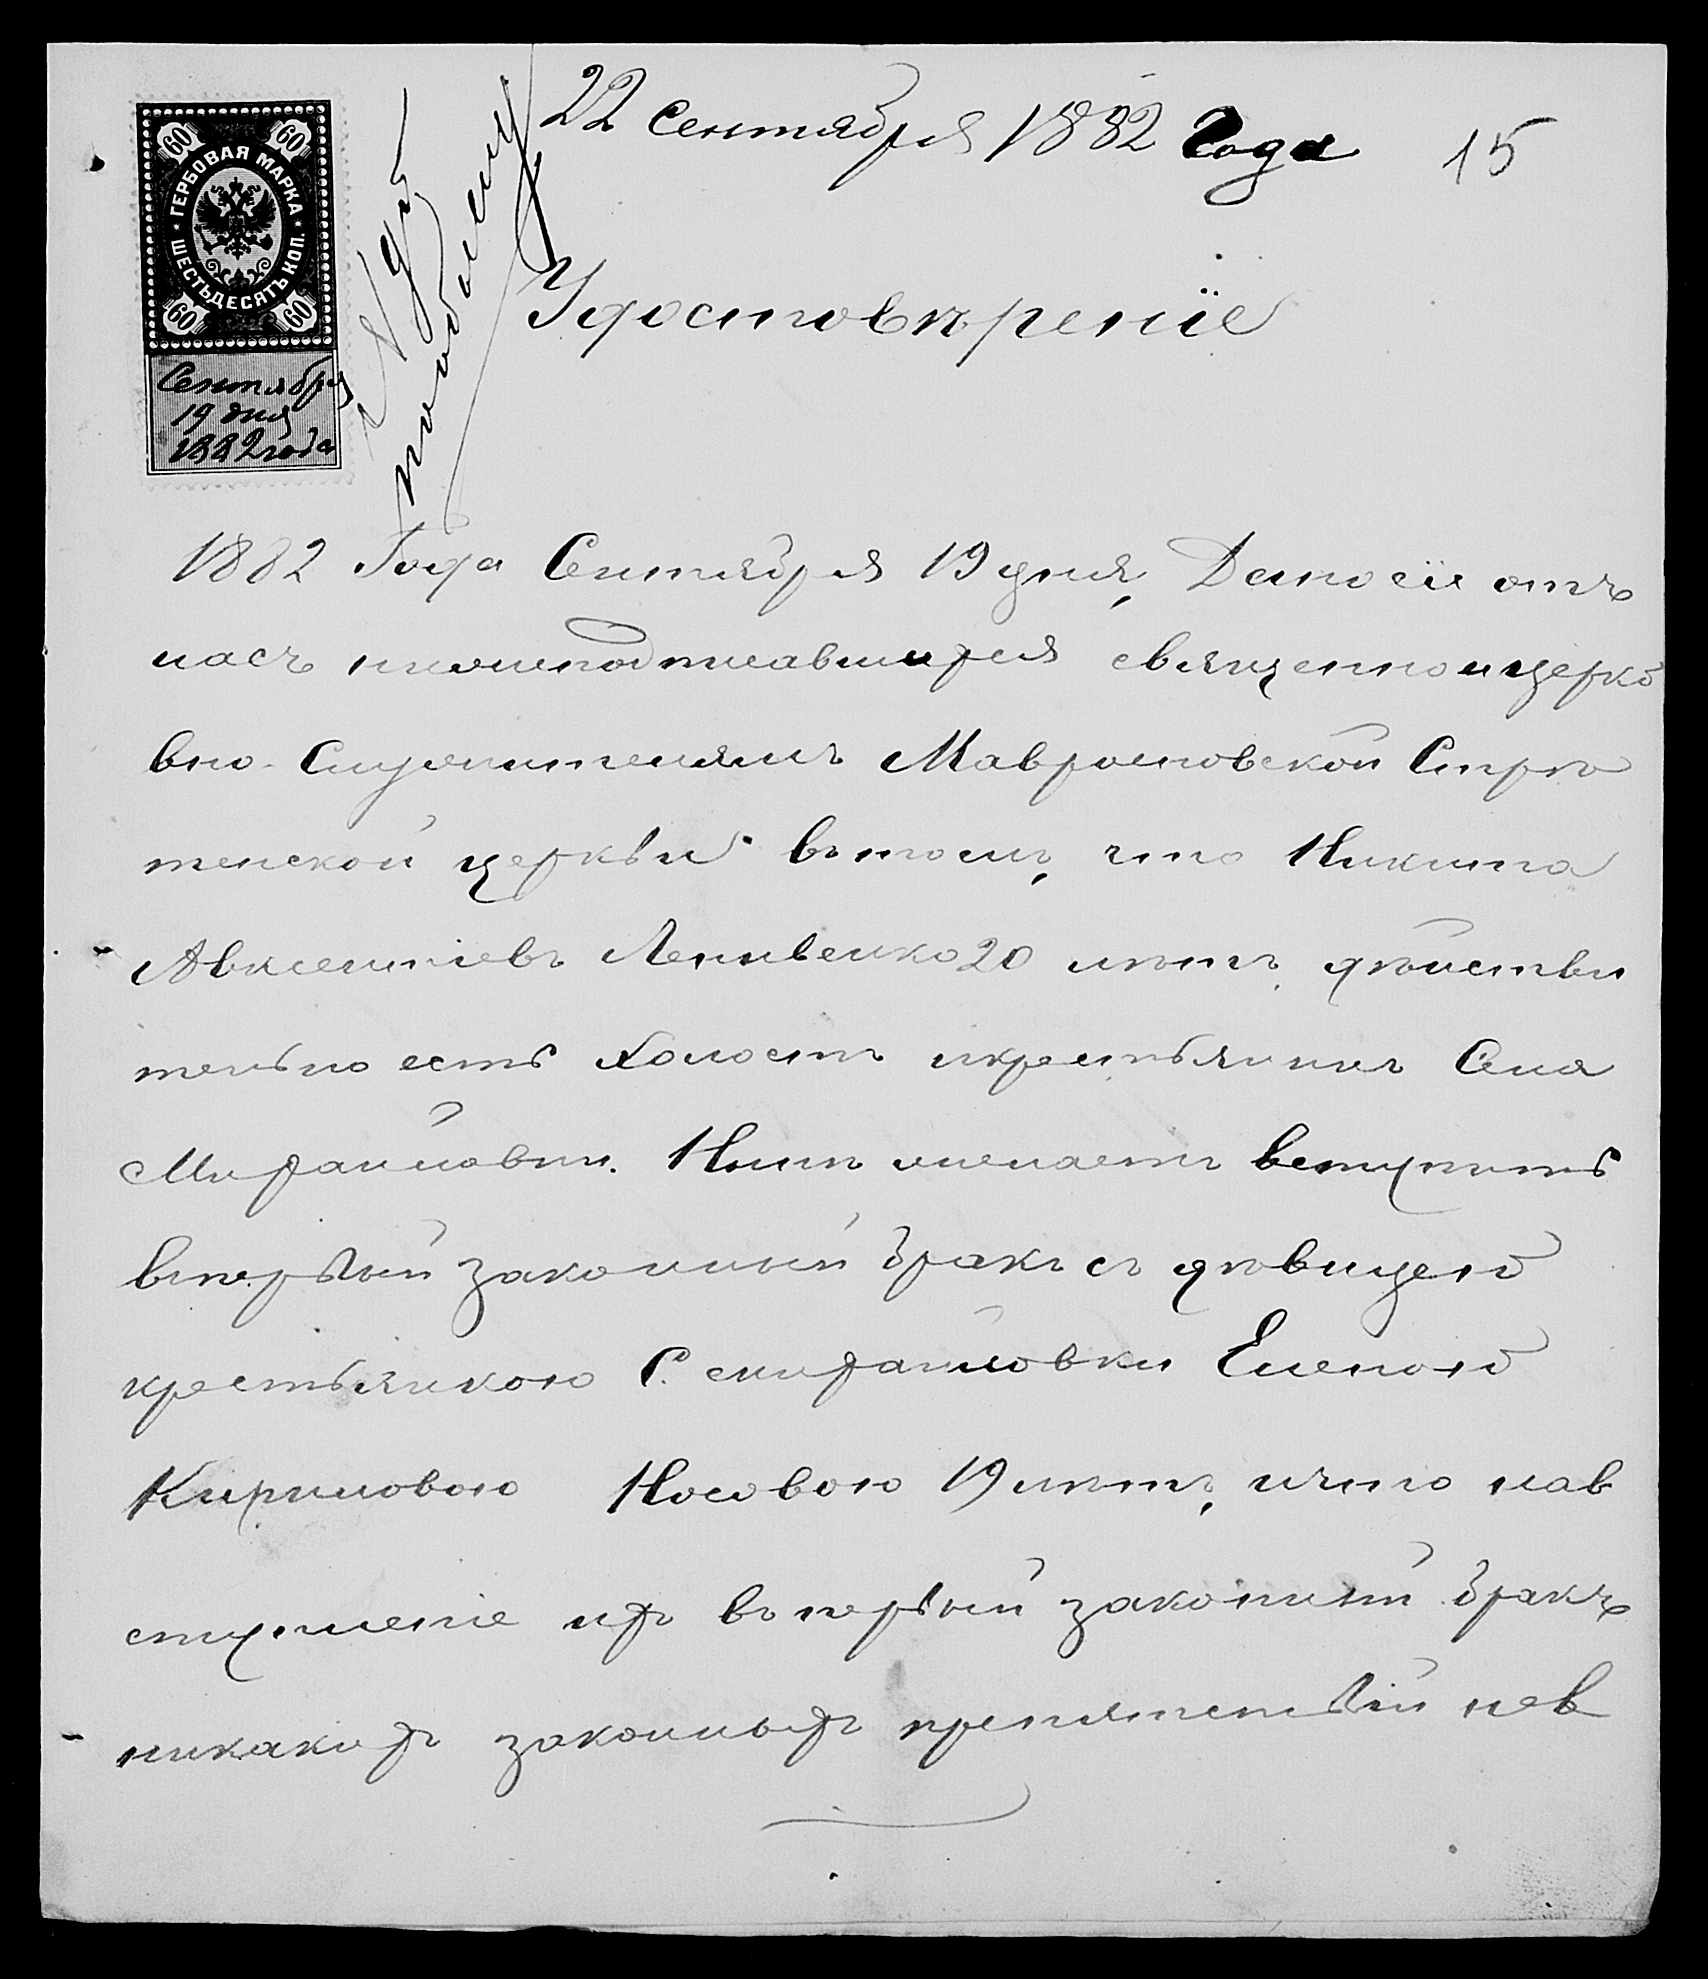 22 Сентября 1882 Года 15
60 60
ГЕРБОВАЯ МАРКА
ШЕСТЬДЕСЯТЪ КОП.
60 60
Сентября
19 дня
1882 года
Удостовѣреніе
1882 Года Сентября 19 дня, Дано сіе отъ
насъ нижеподписавшихся священно и церко
вно-Служителямъ Мавроиновской Стрѣ
тенской церкви въ томъ, что Никита
Авксентіевъ Ленивенко 20 лѣтъ, дѣйстви
тельно есть Холостъ и крестьянинъ Села
Михайловки. Нынѣ желаетъ вступить
в первый законный бракъ съ дѣвицею
крестьянкою С. михайловки Еленою
Кириловою Носовою 19 лѣтъ, и что на в
ступленіе ихъ въ первый законный бракъ
никакихъ законныхъ препятствій не в